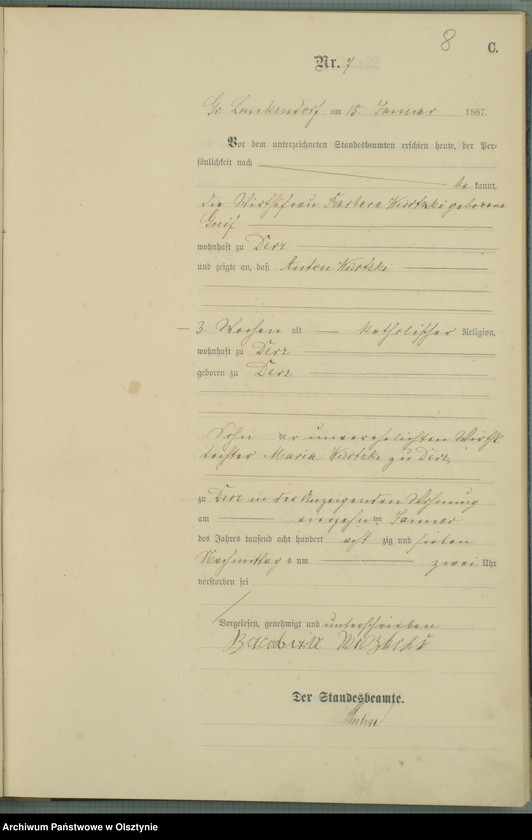 8 C.
Nr. 7
Gr. Lemkendorf am 15. Januar 1887.
Vor dem unterzeichneten Standesbeamten erschien heute, der Per-
sönlichkeit nach
be kannt,
die Wirthsfrau Barbara geborene
Greif
wohnhaft zu Derz
und zeigte an, daß Anton
3 Wochen alt katholischer Religion,
wohnhaft zu Derz
geboren zu Derz
Sohn der unverehelichten Wirths-
tochter Maria zu Derz,
zu Derz in der Anzeigenden Wohnung
am vierzehnten Januar
des Jahres tausend acht hundert acht zig und sieben
Nachmittags um zwei Uhr
verstorben sei
Vorgelesen, genehmigt und unterschrieben
Der Standesbeamte.
Archiwum Państwowe w Olsztynie